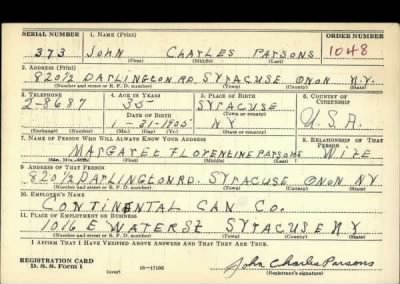 SERIAL NUMBER 1. NAME (Print) ORDER NUMBER
373 JOHN CHARLES PARSONS 1048
(First) (Middle) (Last)
2. ADDRESS (Print)
820½ DARLINGTON RD. SYRACUSE ONON N.Y.
(Number and street or R. F. D. number) (Town) (County) (State)
3. TELEPHONE 4. AGE IN YEARS 5. PLACE OF BIRTH 6. COUNTRY OF CITIZENSHIP
2-8687 35 SYRACUSE U.S.A.
DATE OF BIRTH (Town or county)
1-31-1905 NY
(Exchange) (Number) (Mo.) (Day) (Yr.) (State or country)
7. NAME OF PERSON WHO WILL ALWAYS KNOW YOUR ADDRESS 8. RELATIONSHIP OF THAT PERSON
MARGARET FLORENTINE PARSONS WIFE
(Mr., Mrs., Miss) (First) (Middle) (Last)
9. ADDRESS OF THAT PERSON
820½ DARLINGTON RD. SYRACUSE ONON NY
(Number and street or R. F. D. number) (Town) (County) (State)
10. EMPLOYER'S NAME
CONTINENTAL CAN CO.
11. PLACE OF EMPLOYMENT OR BUSINESS
1016 E WATER ST SYRACUSE NY
(Number and street or R. F. D. number) (Town) (County) (State)
I AFFIRM THAT I HAVE VERIFIED ABOVE ANSWERS AND THAT THEY ARE TRUE.
REGISTRATION CARD
D. S. S. Form 1 (over) 16-17105 John Charles Parsons
(Registrant's signature)